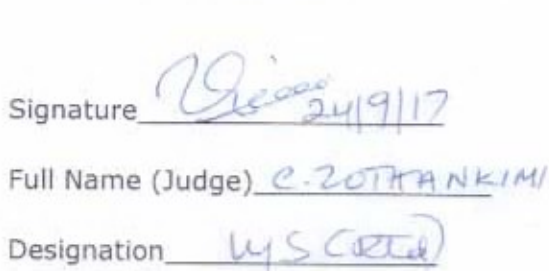 Signature 24/9/17
Full Name (Judge) C. ZOTHANKIMI
Designation